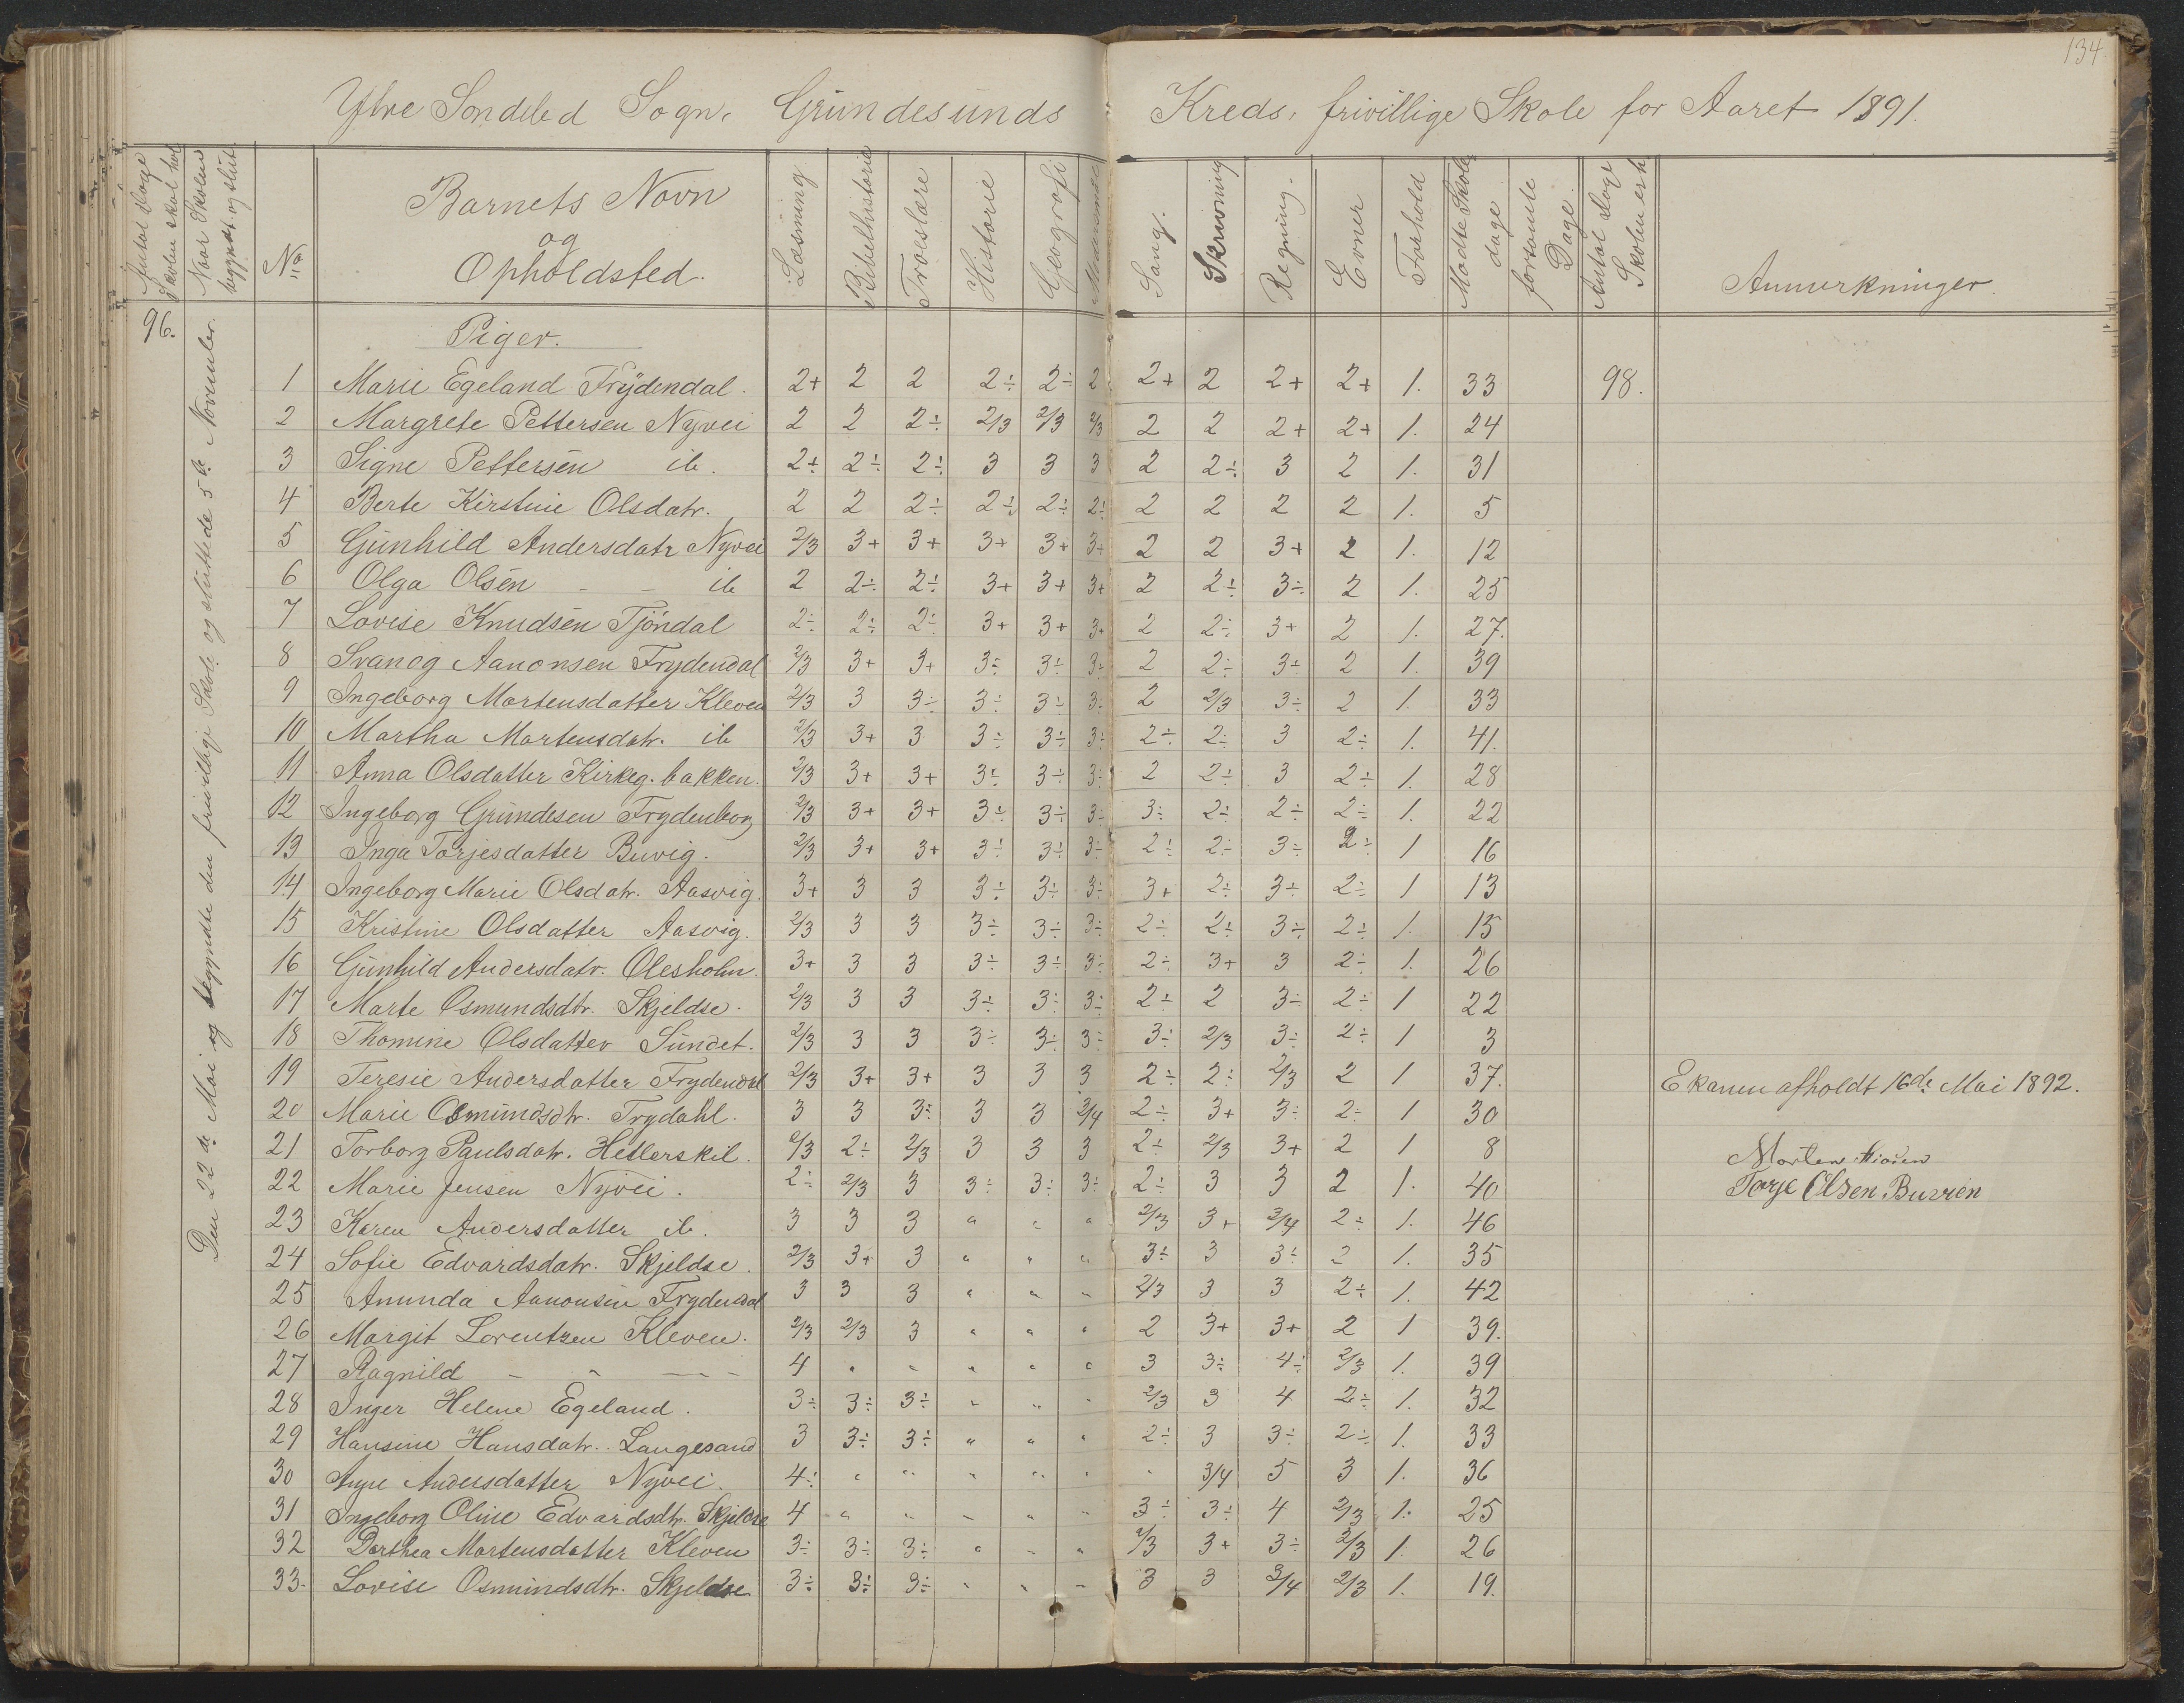 134
Ytre Söndeled Sogn, Grundesunds Kreds, frivillige Skole for Aaret 1891.
Antal Dage Skolen skal hol
Naar Skolen begyndt. og slut.
No
Barnets Navn
og
Opholdsted.
Læsning
Bibelhistorie
Troeslære
Historie
Geografi
Sang.
Skrivning
Regning.
Evner
Forhold
Mødte Skoledage
forsømte Dage.
Antal Dage Skolen er h.
Anmerkninger.
96.
Den 22de Mai og begyndte den frivillige Skole og sluttede 5te November.
Piger.
1 Marie Egeland Frydendal. 2+ 2 2 2÷ 2÷ 2 2+ 2 2+ 2+ 1. 33 98.
2 Margrete Pettersen Nyvei 2 2 2÷ 2/3 2/3 2/3 2 2 2+ 2+ 1. 24
3 Signe Pettersen ib. 2+ 2÷ 2÷ 3 3 3 2 2÷ 3 2 1. 31
4 Berte Kirstine Olsdatr. 2 2 2÷ 2÷ 2÷ 2÷ 2 2 2 2 1. 5
5 Gunhild Andersdatr Nyvei 2/3 3+ 3+ 3+ 3+ 3+ 2 2 3+ 2 1. 12
6 Olga Olsen - - ib 2 2÷ 2÷ 3+ 3+ 3+ 2 2÷ 3÷ 2 1. 25
7 Lovise Knudsen Tjöndal 2÷ 2÷ 2÷ 3+ 3+ 3+ 2 2÷ 3+ 2 1. 27.
8 Svanog Aanonsen Frydendal 2/3 3+ 3+ 3÷ 3÷ 3÷ 2 2÷ 3÷ 2 1. 39
9 Ingeborg Martensdatter Kleven 2/3 3 3÷ 3÷ 3÷ 3÷ 2 2/3 3÷ 2 1. 33
10 Martha Martensdatr. ib 2/3 3+ 3 3÷ 3÷ 3÷ 2÷ 2÷ 3 2÷ 1. 41.
11 Anna Olsdatter Kirkeg. bakken. 2/3 3+ 3+ 3÷ 3÷ 3÷ 2 2÷ 3 2÷ 1. 28
12 Ingeborg Grundesen Frydenborg 2/3 3+ 3+ 3÷ 3÷ 3÷ 3÷ 2÷ 2÷ 2÷ 1. 22
13 Inga Torjesdatter Buvig. 2/3 3+ 3+ 3÷ 3÷ 3÷ 2÷ 2÷ 3÷ 2÷ 1 16
14 Ingeborg Marie Olsdatr. Aasvig. 3+ 3 3 3÷ 3÷ 3÷ 3+ 2÷ 3÷ 2÷ 1 13
15 Kristine Olsdatter Aasvig. 2/3 3 3 3÷ 3÷ 3÷ 2÷ 2÷ 3÷ 2÷ 1. 15
16 Gunhild Andersdatr. Olesholm. 3+ 3 3 3÷ 3÷ 3÷ 2÷ 3+ 3 2÷ 1. 26
17 Marte Osmundsdtr. Skjeldsø. 2/3 3 3 3÷ 3÷ 3÷ 2÷ 2 3÷ 2÷ 1 22
18 Thomine Olsdatter Sundet. 2/3 3 3 3÷ 3÷ 3÷ 3÷ 2/3 3÷ 2÷ 1 3
19 Teresie Andersdatter Frydendal 2/3 3+ 3+ 3 3 3 2÷ 2÷ 2/3 2 1 37. Ekamen afholdt 16de Mai 1892.
20 Marie Osmundsdtr. Trydahl. 3 3 3÷ 3 3 3/4 2÷ 3+ 3÷ 2÷ 1 30
21 Torborg Paulsdatr. Hetlerskil. 2/3 2÷ 2/3 3 3 3 2÷ 2/3 3+ 2 1 8 Morten
22 Marie Jensen Nyvei. 2÷ 2/3 3 3÷ 3÷ 3÷ 2÷ 3 3 2 1. 40 Torje Olsen
23 Karen Andersdatter ib. 3 3 3 " " " 2/3 3+ 3/4 2÷ 1. 46
24 Sofie Edvardsdatr. Skjeldsø. 2/3 3+ 3 " " " 3÷ 3 3÷ 2 1. 35
25 Amunda Aanonsen Frydendal 3 3 3 " " " 2/3 3 3 2÷ 1. 42
26 Margit Lorentzen Kleven. 2/3 2/3 3 " " " 2 3+ 3+ 2 1 39.
27 Ragnild - - - - - 4 " " " " " 3 3÷ 4÷ 2/3 1. 39
28 Inger Helene Egeland. 3÷ 3÷ 3÷ " " " 2/3 3 4 2÷ 1. 32
29 Hansine Hansdatr. Langesand 3 3÷ 3÷ " " " 2÷ 3 3÷ 2÷ 1. 33
30 Andersdatter Nyvei. 4÷ " " " " " " 3/4 5 3 1. 36
31 Ingeborg Oline Edvardsdtr. Skjeldsø 4 " " " " " 3÷ 3÷ 4 2/3 1. 25
32 Dorthea Martensdatter Kleven 3÷ 3÷ 3÷ " " " 2/3 3+ 3÷ 2/3 1. 26
33. Lovise Osmundsdtr. Skjeldsø 3÷ 3÷ 3÷ " " " 3 3 3/4 2/3 1. 19.